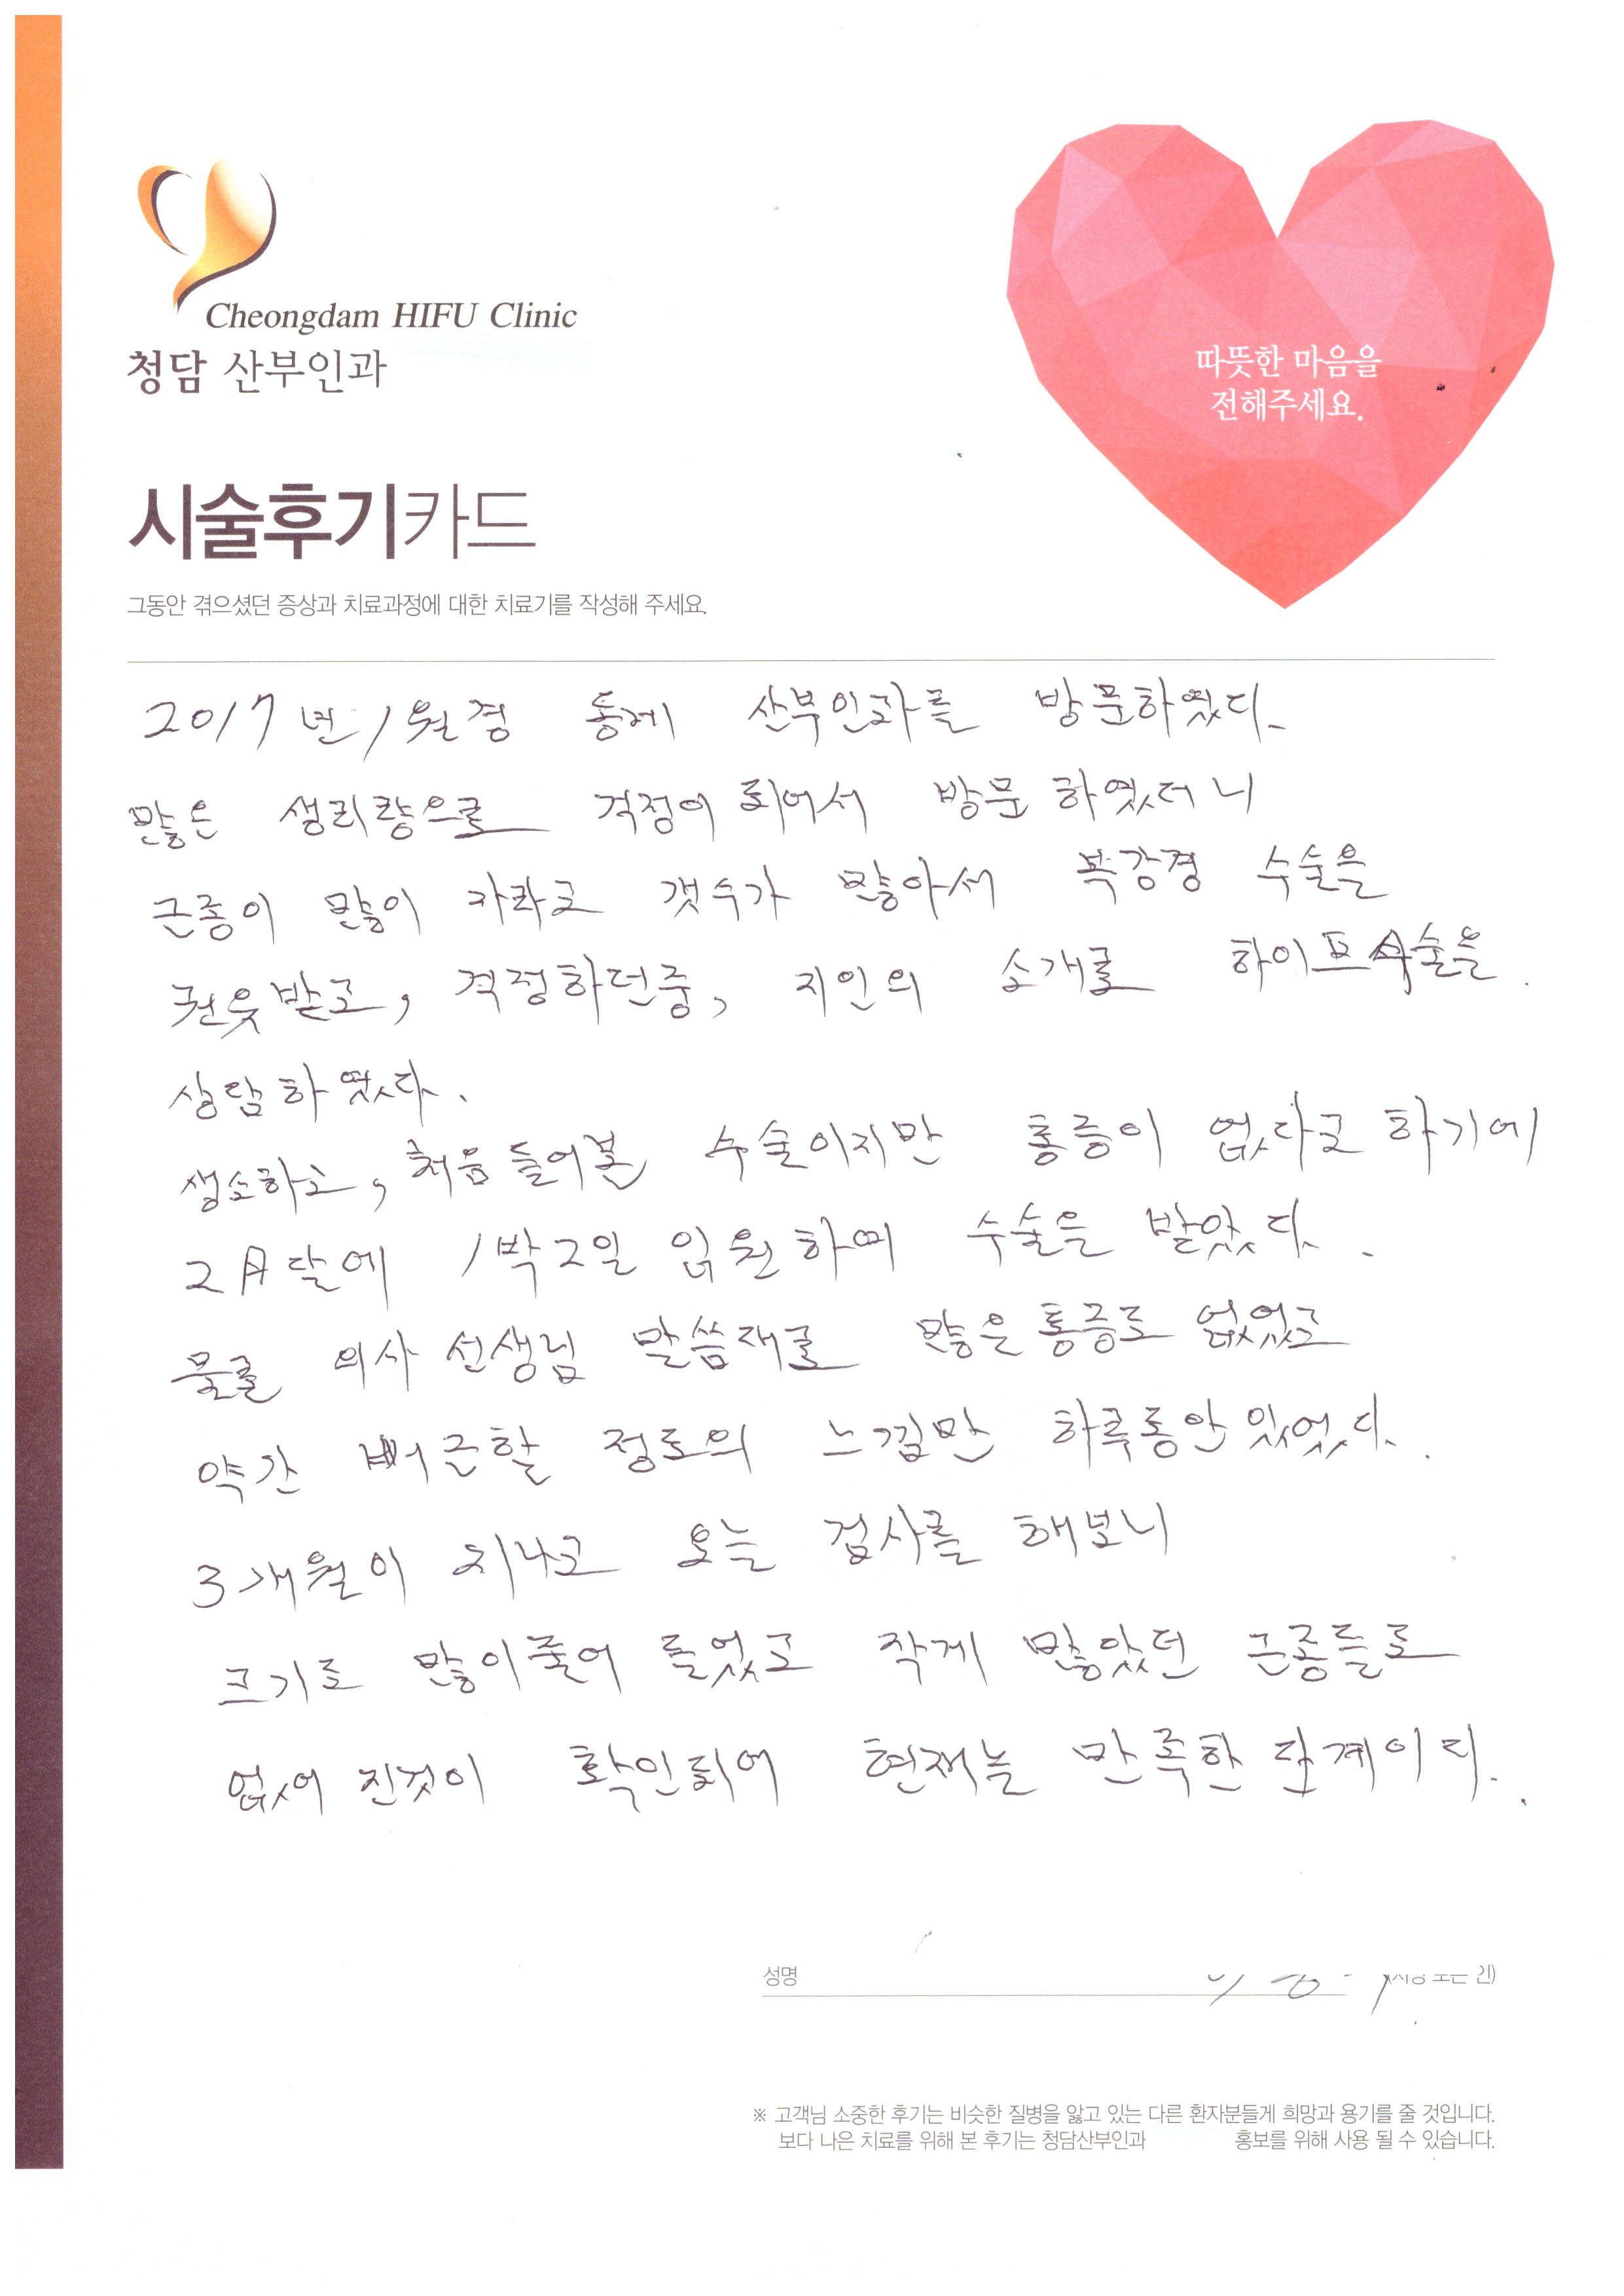 Cheongdam HIFU Clinic
청담 산부인과
따뜻한 마음을
전해주세요.
시술후기카드
그동안 겪으셨던 증상과 치료과정에 대한 치료기를 작성해 주세요.
2017년 1월경 동네 산부인과를 방문하였다.
많은 생리량으로 걱정이 되어서 방문 하였더니
근종이 많이 자라고 갯수가 많아서 복강경 수술을
권유받고, 걱정하던중, 지인의 소개로 하이프 수술을
상담하였다.
생소하고, 처음 들어본 수술이지만 통증이 없다고 하기에
2月달에 1박2일 입원하며 수술을 받았다.
물론 의사 선생님 말씀대로 많은 통증도 없었고
약간 뻐근할 정도의 느낌만 하루동안 있었다.
3개월이 지나고 오늘 검사를 해보니
크기도 많이 줄어 들었고 작게 많았던 근종들도
없어 진것이 확인되어 현재는 만족한 단계이다.
성명
※ 고객님 소중한 후기는 비슷한 질병을 앓고 있는 다른 환자분들게 희망과 용기를 줄 것입니다.
보다 나은 치료를 위해 본 후기는 청담산부인과 홍보를 위해 사용 될 수 있습니다.